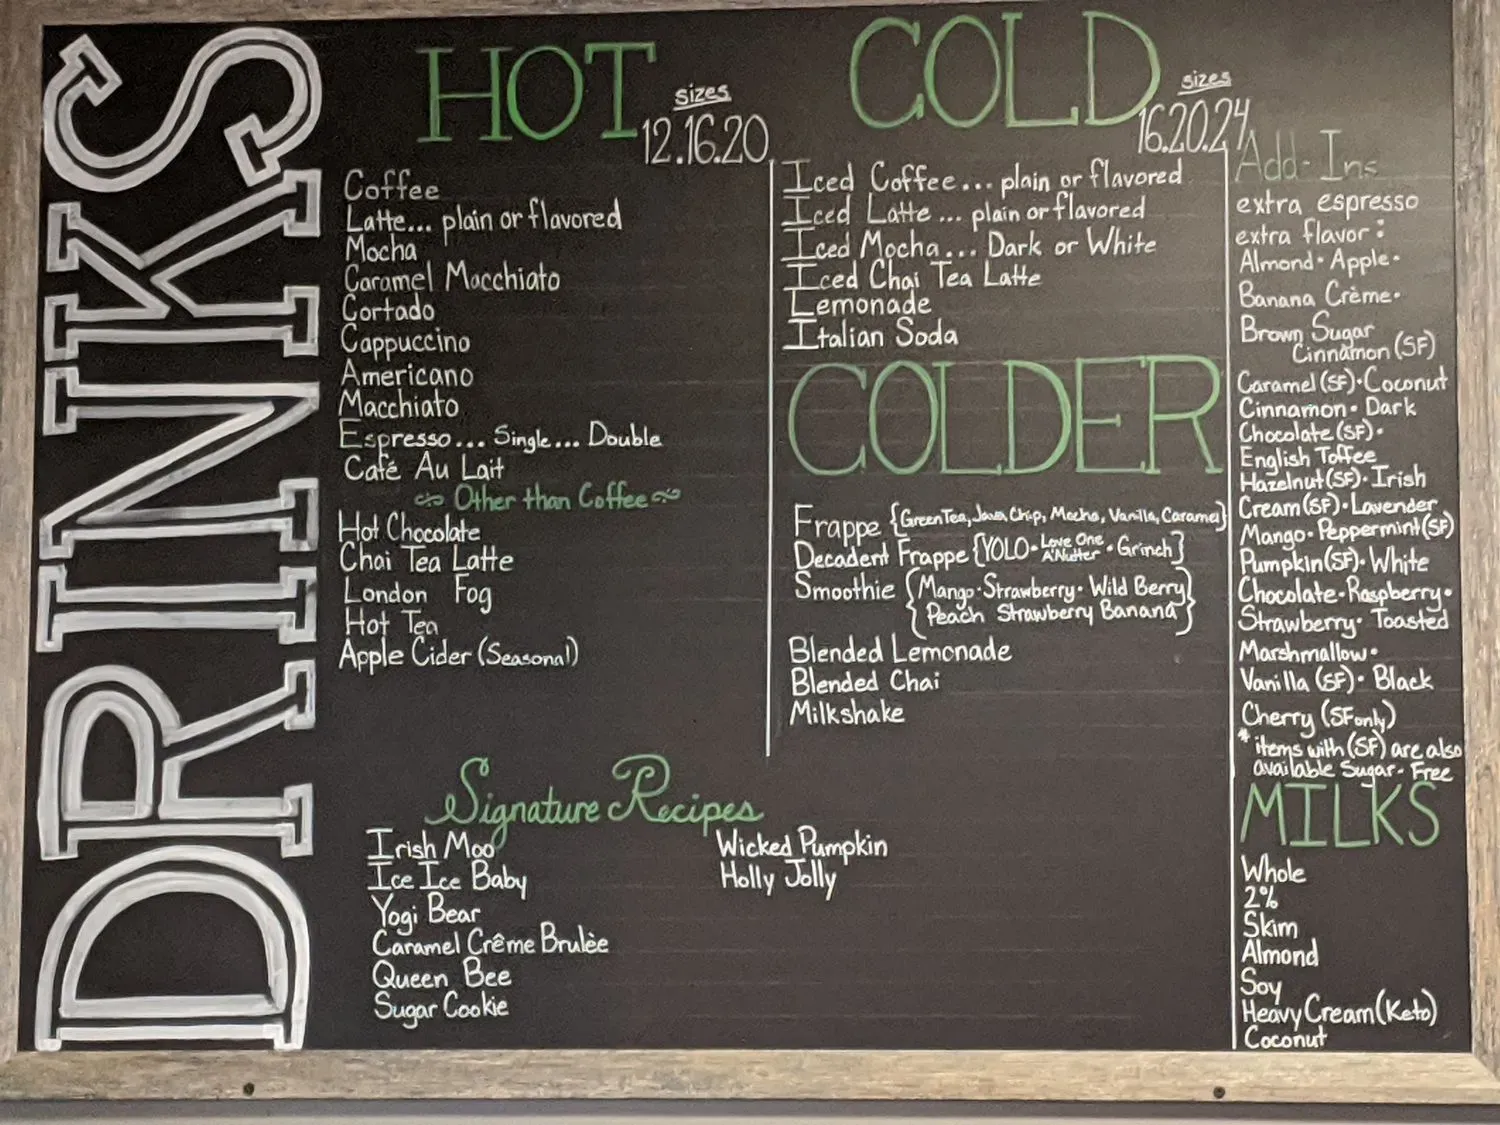 DRINKS
HOT
sizes
12.16.20
Coffee
Latte... plain or flavored
Mocha
Caramel Macchiato
Cortado
Cappuccino
Americano
Macchiato
Espresso... Single... Double
Café Au Lait
Other than Coffee
Hot Chocolate
Chai Tea Latte
London Fog
Hot Tea
Apple Cider (Seasonal)
COLD
sizes
16.20.24
Iced Coffee... plain or flavored
Iced Latte... plain or flavored
Iced Mocha... Dark or White
Iced Chai Tea Latte
Lemonade
Italian Soda
COLDER
Frappe {Green Tea, Java Chip, Mocha, Vanilla, Caramel}
Decadent Frappe {YOLO • Love One A'Nutter • Grinch}
Smoothie {Mango • Strawberry • Wild Berry
Peach Strawberry Banana}
Blended Lemonade
Blended Chai
Milkshake
Signature Recipes
Irish Moo
Ice Ice Baby
Yogi Bear
Caramel Crême Brulèe
Queen Bee
Sugar Cookie
Wicked Pumpkin
Holly Jolly
Add-Ins
extra espresso
extra flavor:
Almond • Apple •
Banana Crème •
Brown Sugar
Cinnamon (SF)
Caramel (SF) • Coconut
Cinnamon • Dark
Chocolate (SF) •
English Toffee
Hazelnut (SF) • Irish
Cream (SF) • Lavender
Mango • Peppermint (SF)
Pumpkin (SF) • White
Chocolate • Raspberry •
Strawberry • Toasted
Marshmallow •
Vanilla (SF) • Black
Cherry (SF only)
* items with (SF) are also
available Sugar-Free
MILKS
Whole
2%
Skim
Almond
Soy
Heavy Cream (Keto)
Coconut